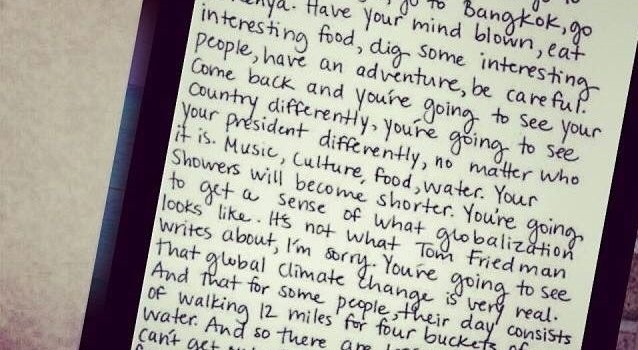 to Bangkok, go
Kenya. Have your mind blown, eat
interesting food, dig some interesting
people, have an adventure, be careful.
Come back and you're going to see your
country differently, you're going to see
your president differently, no matter who
it is. Music, Culture, food, water. Your
Showers will become shorter. You're going
to get a sense of what globalization
looks like. It's not what Tom Friedman
writes about, I'm sorry. You're going to see
that global climate change is very real.
And that for some people, their day consists
of walking 12 miles for four buckets of
water. And so there are
can't get